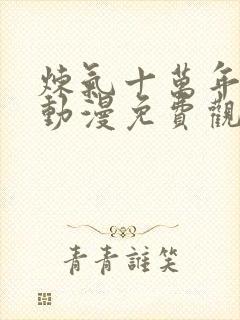 煉氣十萬年
動漫免費觀
青青誰笑